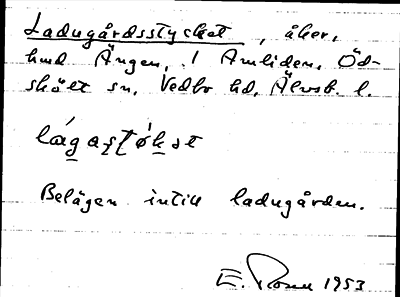 Ladugårdsstycket, åker,
hmd Ängen, 1 Amliden, Öd-
skölt sn, Vedbo hd, Älvsb. l.
Belägen intill ladugården.
E. 1953